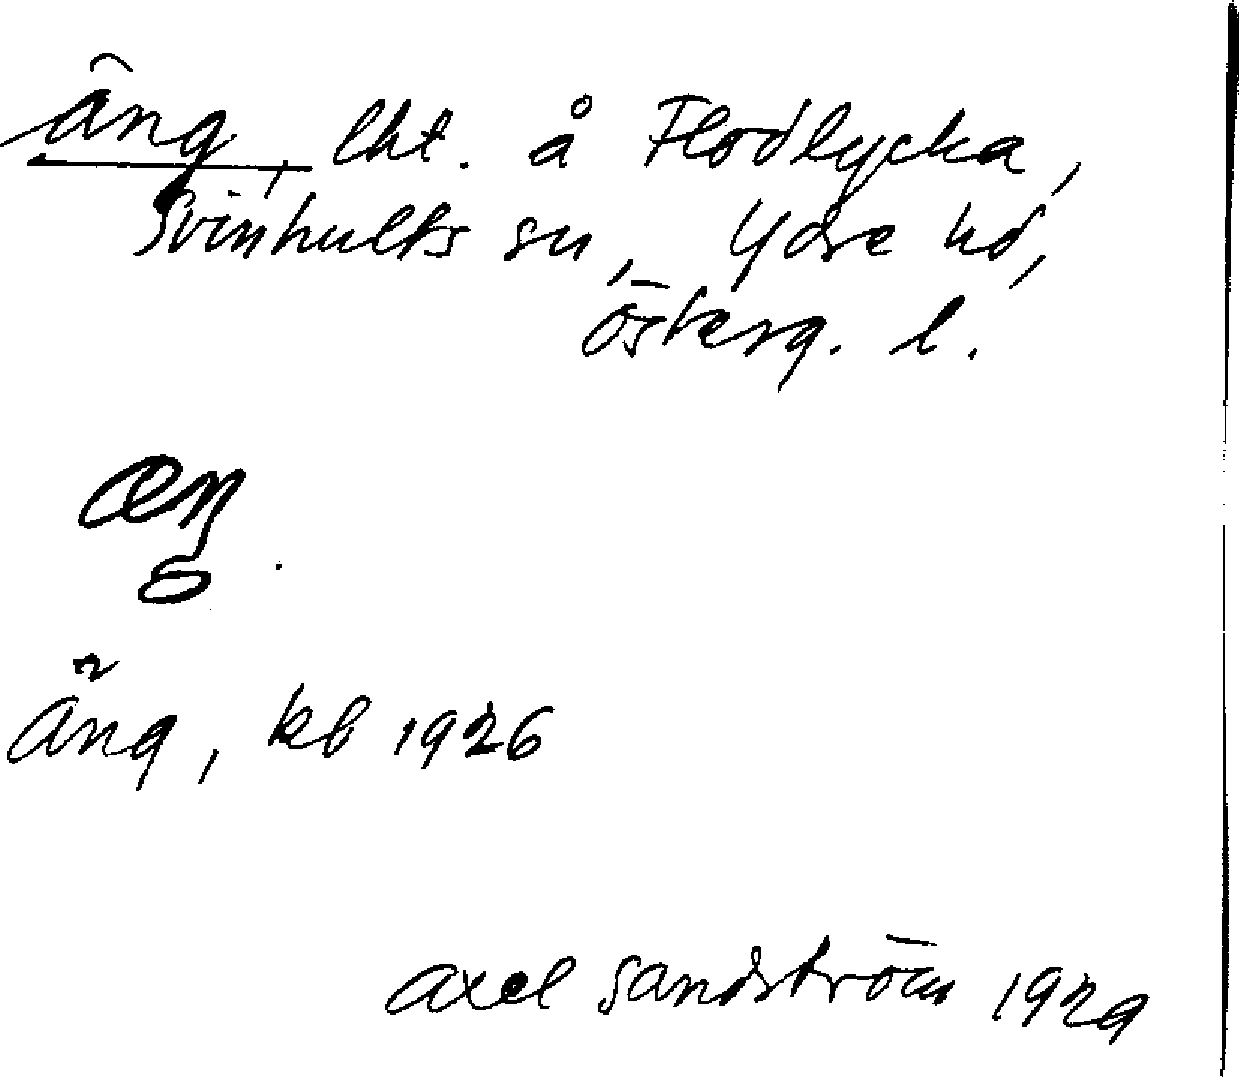 Äng, lht. å Flodlycka,
Svinhults sn, Ydre hd,
Österg. l.
æŋ
Äng, kb 1926
Axel Sandström 1929